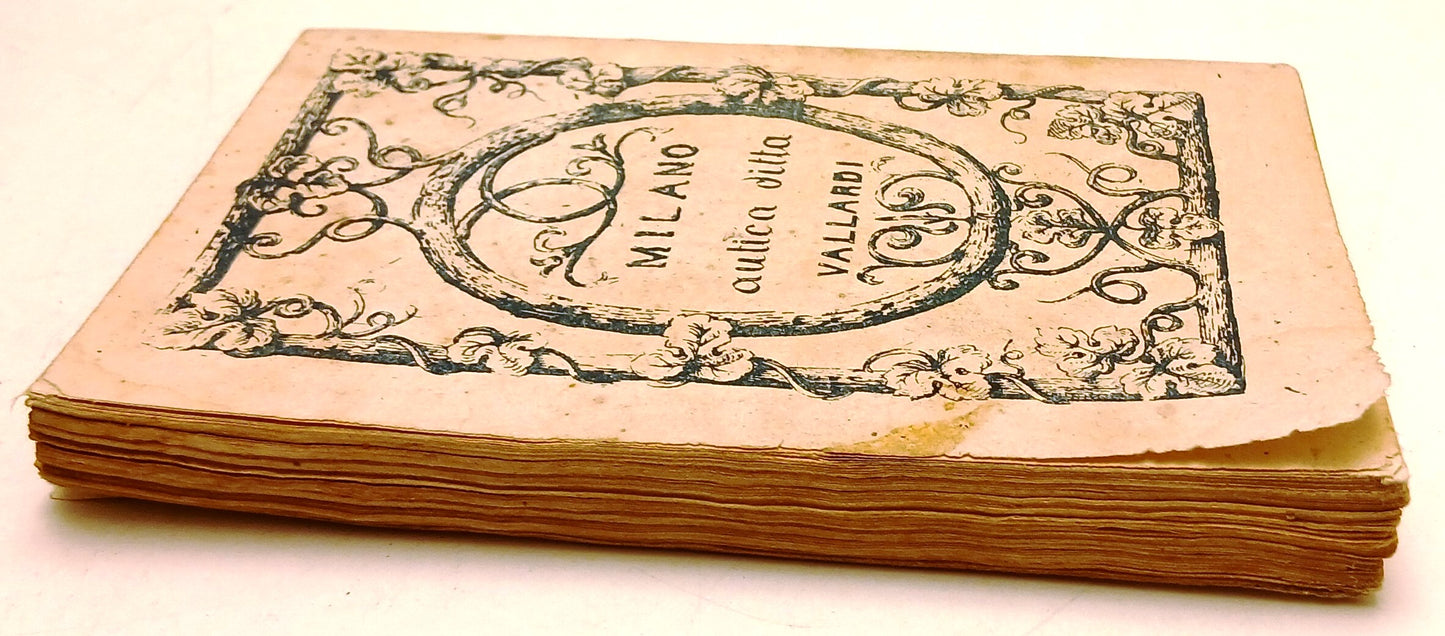 MILANO
antica ditta
VALLARDI